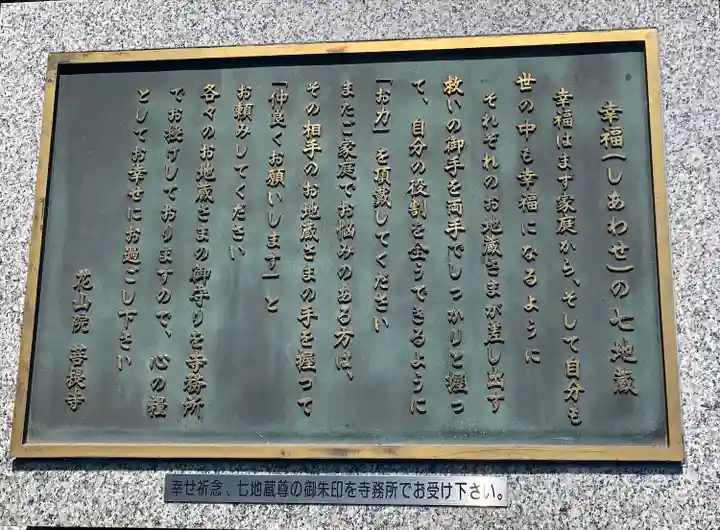 幸福(しあわせ)の七地蔵
幸福はまず家庭から、そして自分も
世の中も幸福になるように
それぞれのお地蔵さまが差し出す
救いの御手を両手でしっかりと握っ
て、自分の役割を全うできるように
「お力」を頂戴してください
またご家庭でお悩みのある方は、
その相手のお地蔵さまの手を握って
「仲良くお願いします」と
お頼みしてください
各々のお地蔵さまの御守りを寺務所
でお授けしておりますので、心の糧
としてお幸せにお過ごし下さい
花山院 菩提寺
幸せ祈念、七地蔵尊の御朱印を寺務所でお受け下さい。